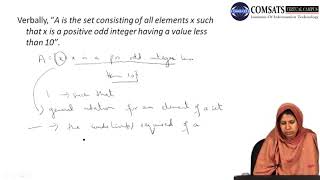 Verbally, "A is the set consisting of all elements x such
that x is a positive odd integer having a value less
than 10".
COMSATS VIRTUAL CAMPUS
Institute Of Information Technology
A = {x | x is a pos odd integer less
than 10}
| → such that
general notation for an element of a set
→ the required of a